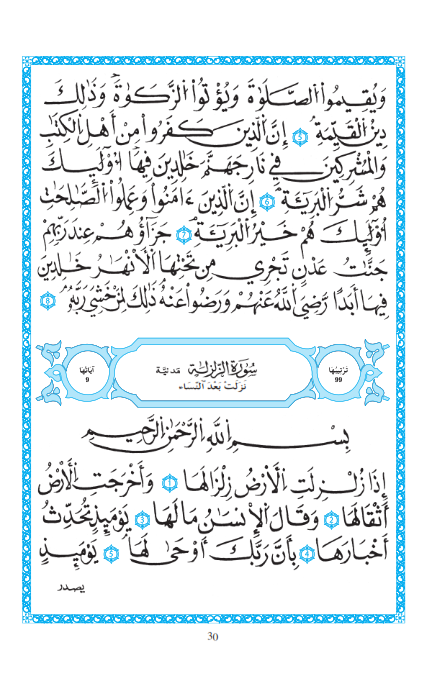 وَيُقِيمُوا۟ الصَّلَوٰةَ وَيُؤْتُوا۟ الزَّكَوٰةَ وَذَٰلِكَ
دِينُ الْقَيِّمَةِ 5 إِنَّ الَّذِينَ كَفَرُوا۟ مِنْ أَهْلِ الْكِتَٰبِ
وَالْمُشْرِكِينَ فِي نَارِ جَهَنَّمَ خَٰلِدِينَ فِيهَا أُوْلَٰٓئِكَ
هُمْ شَرُّ الْبَرِيَّةِ 6 إِنَّ الَّذِينَ ءَامَنُوا۟ وَعَمِلُوا۟ الصَّٰلِحَٰتِ
أُوْلَٰٓئِكَ هُمْ خَيْرُ الْبَرِيَّةِ 7 جَزَآؤُهُمْ عِندَ رَبِّهِمْ
جَنَّٰتُ عَدْنٍ تَجْرِي مِن تَحْتِهَا الْأَنْهَٰرُ خَٰلِدِينَ
فِيهَا أَبَدًا رَّضِيَ اللَّهُ عَنْهُمْ وَرَضُوا۟ عَنْهُ ذَٰلِكَ لِمَنْ خَشِيَ رَبَّهُۥ 8
تَرْتِيبُهَا 99
سُورَةُ الزَّلْزَلَةِ مَدَنِيَّة
نَزَلَتْ بَعْدَ النِّسَاء
آيَاتُهَا 9
بِسْمِ اللَّهِ الرَّحْمَٰنِ الرَّحِيمِ
إِذَا زُلْزِلَتِ الْأَرْضُ زِلْزَالَهَا 1 وَأَخْرَجَتِ الْأَرْضُ
أَثْقَالَهَا 2 وَقَالَ الْإِنسَٰنُ مَا لَهَا 3 يَوْمَئِذٍ تُحَدِّثُ
أَخْبَارَهَا 4 بِأَنَّ رَبَّكَ أَوْحَىٰ لَهَا 5 يَوْمَئِذٍ
يصدر
30